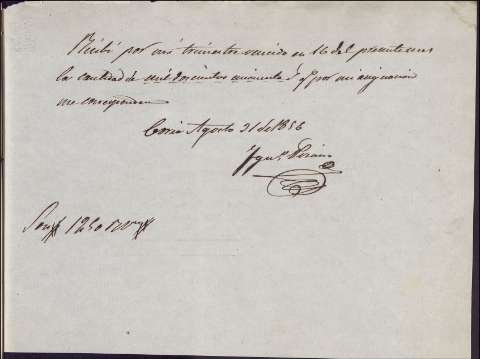 Recibí por mi trimestre vencido en 16 del presente mes
la cantidad de mil doscientos cincuenta r.s q.e por mi asignacion
me corresponden
Coria Agosto 21 de 1856
Ygn.o
Son 1250